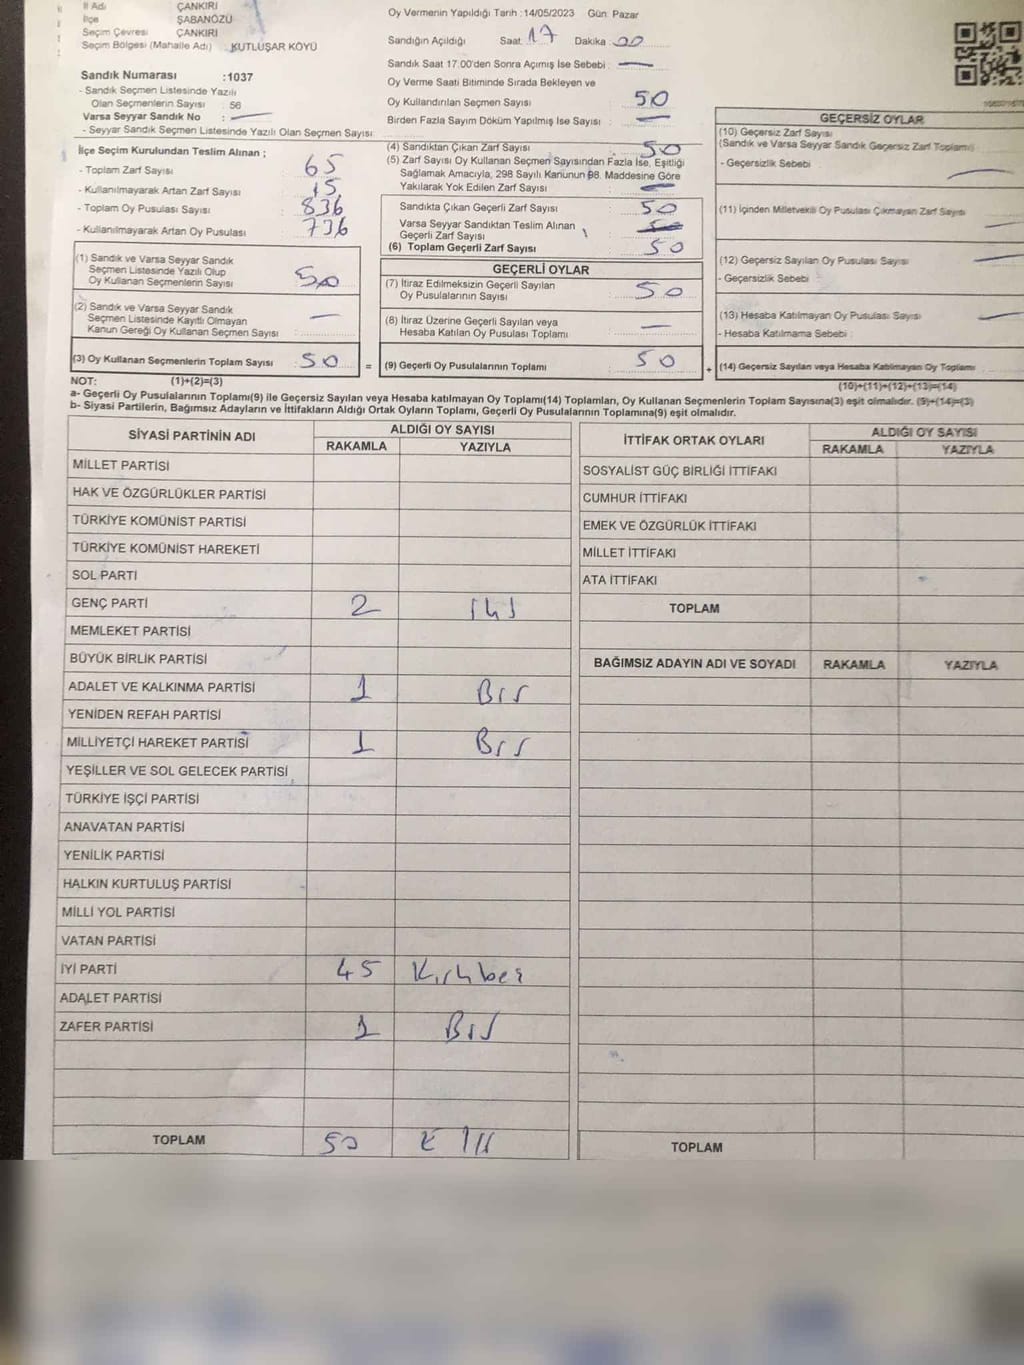 İl Adı ÇANKIRI
İlçe ŞABANÖZÜ
Seçim Çevresi ÇANKIRI
Seçim Bölgesi (Mahalle Adı) KUTLUŞAR KÖYÜ
Sandık Numarası :1037
- Sandık Seçmen Listesinde Yazılı
Olan Seçmenlerin Sayısı : 56
Varsa Seyyar Sandık No :
- Seyyar Sandık Seçmen Listesinde Yazılı Olan Seçmen Sayısı:
Oy Vermenin Yapıldığı Tarih :14/05/2023 Gün Pazar
Sandığın Açıldığı Saat 17 Dakika 00
Sandık Saat 17.00'den Sonra Açımış İse Sebebi :
Oy Verme Saati Bitiminde Sırada Bekleyen ve
Oy Kullandırılan Seçmen Sayısı : 50
Birden Fazla Sayım Döküm Yapılmış İse Sayısı :
İlçe Seçim Kurulundan Teslim Alınan ;
- Toplam Zarf Sayısı : 65
- Kullanılmayarak Artan Zarf Sayısı : 15
- Toplam Oy Pusulası Sayısı : 836
- Kullanılmayarak Artan Oy Pusulası : 736
(1) Sandık ve Varsa Seyyar Sandık
Seçmen Listesinde Yazılı Olup
Oy Kullanan Seçmenlerin Sayısı : 50
(2) Sandık ve Varsa Seyyar Sandık
Seçmen Listesinde Kayıtlı Olmayan
Kanun Gereği Oy Kullanan Seçmen Sayısı :
(3) Oy Kullanan Seçmenlerin Toplam Sayısı : 50
(4) Sandıktan Çıkan Zarf Sayısı : 50
(5) Zarf Sayısı Oy Kullanan Seçmen Sayısından Fazla İse, Eşitliği
Sağlamak Amacıyla, 298 Sayılı Kanunun 98. Maddesine Göre
Yakılarak Yok Edilen Zarf Sayısı :
Sandıkta Çıkan Geçerli Zarf Sayısı : 50
Varsa Seyyar Sandıktan Teslim Alınan
Geçerli Zarf Sayısı
(6) Toplam Geçerli Zarf Sayısı : 50
GEÇERLİ OYLAR
(7) İtiraz Edilmeksizin Geçerli Sayılan
Oy Pusulalarının Sayısı : 50
(8) İtiraz Üzerine Geçerli Sayılan veya
Hesaba Katılan Oy Pusulası Toplamı :
= (9) Geçerli Oy Pusulalarının Toplamı : 50
GEÇERSİZ OYLAR
(10) Geçersiz Zarf Sayısı
(Sandık ve Varsa Seyyar Sandık Geçersiz Zarf Toplamı)
- Geçersizlik Sebebi :
(11) İçinden Milletvekili Oy Pusulası Çıkmayan Zarf Sayısı
(12) Geçersiz Sayılan Oy Pusulası Sayısı :
- Geçersizlik Sebebi :
(13) Hesaba Katılmayan Oy Pusulası Sayısı :
- Hesaba Katılmama Sebebi :
+ (14) Geçersiz Sayılan veya Hesaba Katılmayan Oy Toplamı
NOT: (1)+(2)=(3) (10)+(11)+(12)+(13)=(14)
a- Geçerli Oy Pusulalarının Toplamı(9) ile Geçersiz Sayılan veya Hesaba katılmayan Oy Toplamı(14) Toplamları, Oy Kullanan Seçmenlerin Toplam Sayısına(3) eşit olmalıdır. (9)+(14)=(3)
b- Siyasi Partilerin, Bağımsız Adayların ve İttifakların Aldığı Ortak Oyların Toplamı, Geçerli Oy Pusulalarının Toplamına(9) eşit olmalıdır.
SİYASİ PARTİNİN ADI ALDIĞI OY SAYISI
RAKAMLA YAZIYLA
MİLLET PARTİSİ
HAK VE ÖZGÜRLÜKLER PARTİSİ
TÜRKİYE KOMÜNİST PARTİSİ
TÜRKİYE KOMÜNİST HAREKETİ
SOL PARTİ
GENÇ PARTİ 2 İki
MEMLEKET PARTİSİ
BÜYÜK BİRLİK PARTİSİ
ADALET VE KALKINMA PARTİSİ 1 Bir
YENİDEN REFAH PARTİSİ
MİLLİYETÇİ HAREKET PARTİSİ 1 Bir
YEŞİLLER VE SOL GELECEK PARTİSİ
TÜRKİYE İŞÇİ PARTİSİ
ANAVATAN PARTİSİ
YENİLİK PARTİSİ
HALKIN KURTULUŞ PARTİSİ
MİLLİ YOL PARTİSİ
VATAN PARTİSİ
İYİ PARTİ 45 Kırkbeş
ADALET PARTİSİ
ZAFER PARTİSİ 1 Bir
TOPLAM 50 Elli
İTTİFAK ORTAK OYLARI ALDIĞI OY SAYISI
RAKAMLA YAZIYLA
SOSYALİST GÜÇ BİRLİĞİ İTTİFAKI
CUMHUR İTTİFAKI
EMEK VE ÖZGÜRLÜK İTTİFAKI
MİLLET İTTİFAKI
ATA İTTİFAKI
TOPLAM
BAĞIMSIZ ADAYIN ADI VE SOYADI RAKAMLA YAZIYLA
TOPLAM